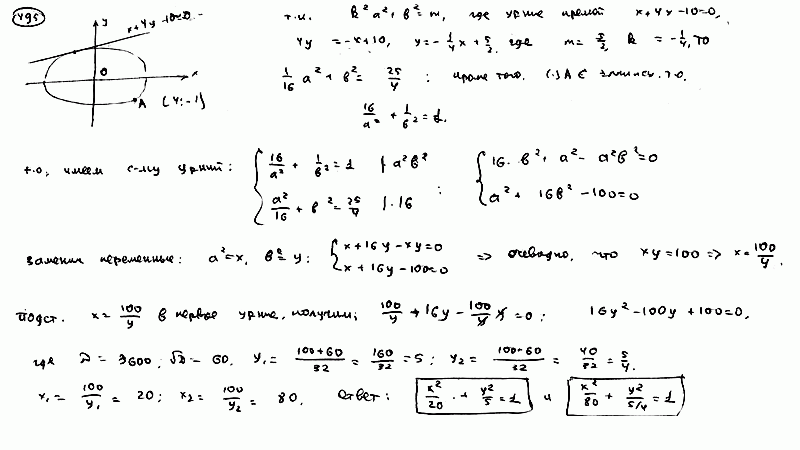 495
y
x+4y-10=0
0
x
A (4;-1)
т.к. k²a²+b²=m, где ур-ние прямой x+4y-10=0,
4y = -x+10, y=-1/4x+5/2, где m=5/2, k=-1/4, то
1/16 a²+b²=25/4 ; кроме того, (·)A ∈ эллипсу, т.о.
16/a²+1/b²=1.
т.о, имеем с-му ур-ний: { 16/a²+1/b²=1 | a²b² ; a²/16+b²=25/4 | ·16 : { 16·b²+a²-a²b²=0 ; a²+16b²-100=0
заменим переменные: a²=x, b²=y: { x+16y-xy=0 ; x+16y-100=0 => очевидно, что xy=100 => x=100/y.
Подст. x=100/y в первое ур-ние, получим; 100/y+16y-100/y·y=0 ; 16y²-100y+100=0,
где D=3600; √D=60. y₁=(100+60)/32=160/32=5; y₂=(100-60)/32=40/32=5/4.
x₁=100/y₁=20; x₂=100/y₂=80. Ответ: x²/20+y²/5=1 и x²/80+y²/5/4=1